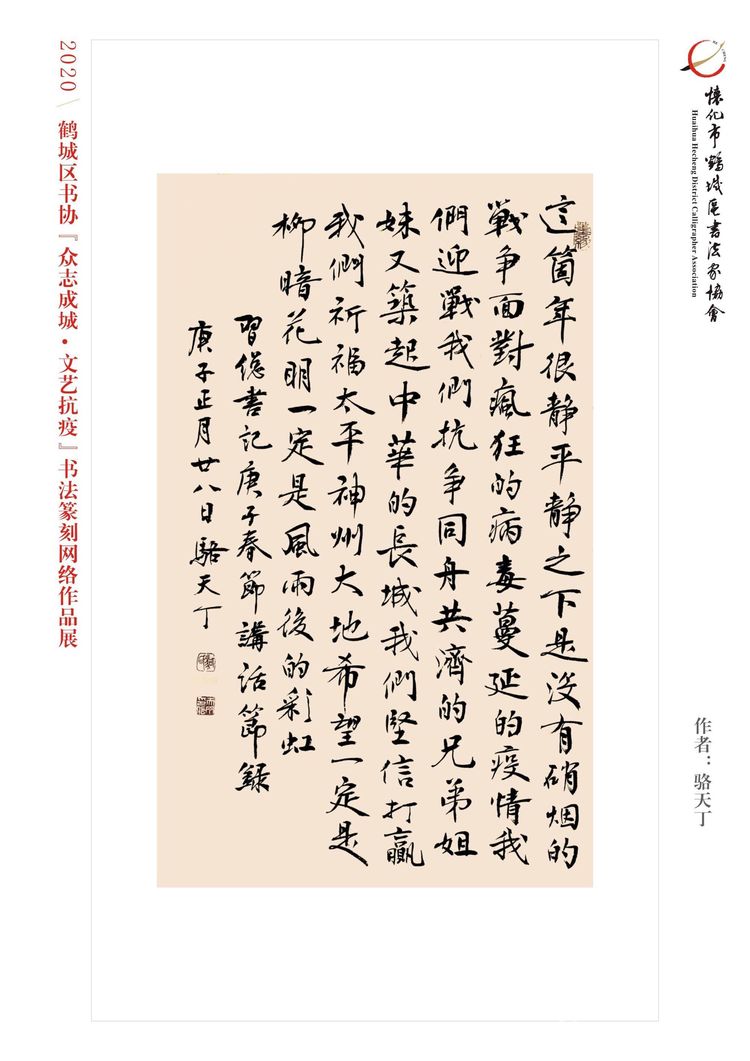 懷化市鶴城區書法家協會
Huaihua Hecheng District Calligrapher Association
作者：骆天丁
這箇年很静平静之下是没有硝烟的
戰争面對瘋狂的病毒蔓延的疫情我
們迎戰我們抗争同舟共濟的兄弟姐
妹又築起中華的長城我們堅信打贏
我們祈福太平神州大地希望一定是
柳暗花明一定是風雨後的彩虹
習總書記庚子春節講話節録
庚子正月廿八日駱天丁
2020 \ 鹤城区书协『众志成城·文艺抗疫』书法篆刻网络作品展